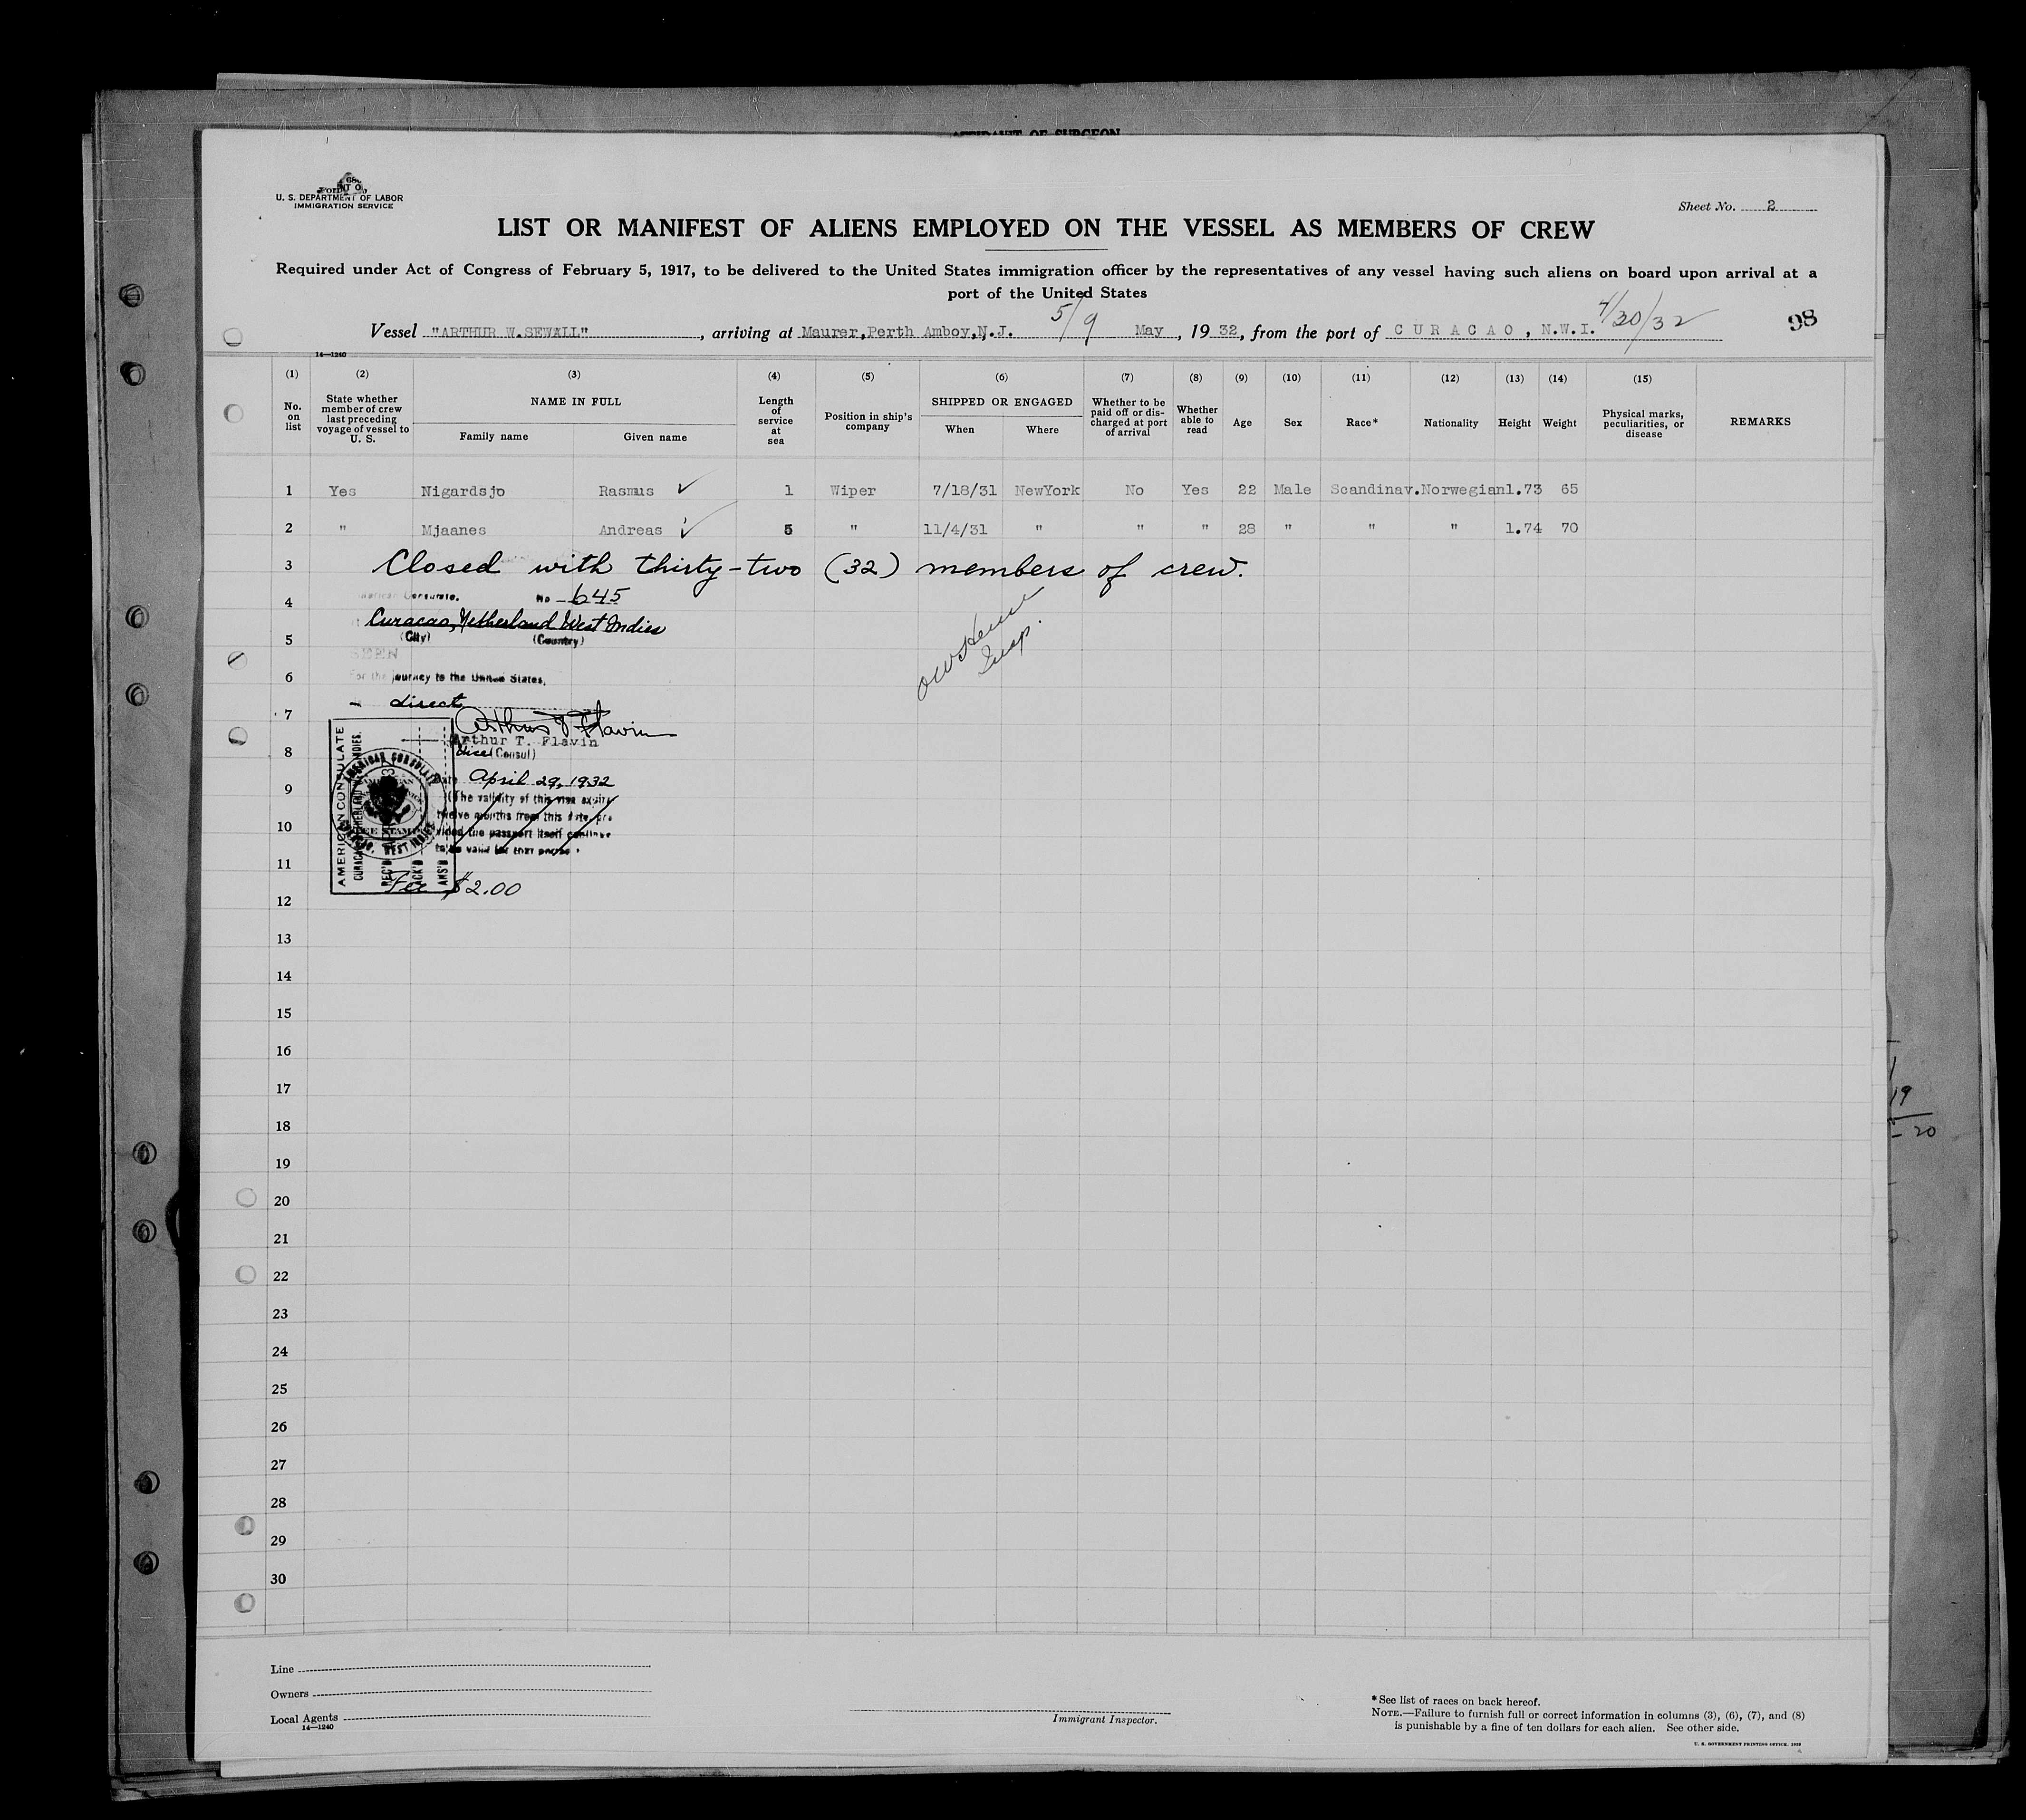 AFFIDAVIT OF SURGEON
Form 680
U. S. DEPARTMENT OF LABOR
IMMIGRATION SERVICE
Sheet No. 2
LIST OR MANIFEST OF ALIENS EMPLOYED ON THE VESSEL AS MEMBERS OF CREW
Required under Act of Congress of February 5, 1917, to be delivered to the United States immigration officer by the representatives of any vessel having such aliens on board upon arrival at a
port of the United States
Vessel "ARTHUR W.SEWALL", arriving at Maurer,Perth Amboy,N.J. 5/9 May, 1932, from the port of CURACAO, N.W.I. 4/30/32 98
14—1240
(1) (2) (3) (4) (5) (6) (7) (8) (9) (10) (11) (12) (13) (14) (15)
No. on list State whether member of crew last preceding voyage of vessel to U. S. NAME IN FULL Family name Given name Length of service at sea Position in ship's company SHIPPED OR ENGAGED When Where Whether to be paid off or discharged at port of arrival Whether able to read Age Sex Race* Nationality Height Weight Physical marks, peculiarities, or disease REMARKS
1 Yes Nigardsjo Rasmus ✓ 1 Wiper 7/18/31 NewYork No Yes 22 Male Scandinav. Norwegian 1.73 65
2 " Mjaanes Andreas ✓ 5 " 11/4/31 " " " 28 " " " 1.74 70
3 Closed with thirty-two (32) members of crew.
4 American Consulate. No 645
Curacao, Netherland West Indies
5 (City) (Country)
SEEN
6 For the journey to the United States,
direct
7 Arthur T. Flavin
Arthur T. Flavin
8 Vice (Consul)
Insp.
9 Date April 29, 1932
(The validity of this visa expires
10 twelve months from this date, pro
vided the passport itself continue
to be valid for that period.
11
Fee $2.00
AMERICAN CONSULATE
CURACAO, NETHERLAND WEST INDIES.
REC'D
ACK'D
ANS'D
AMERICAN CONSULATE
FEE STAMP
CURACAO, WEST INDIES
12
13
14
15
16
17
18
19
20
21
22
23
24
25
26
27
28
29
30
19
20
Line
Owners
Local Agents
14—1240
Immigrant Inspector.
* See list of races on back hereof.
NOTE.—Failure to furnish full or correct information in columns (3), (6), (7), and (8)
is punishable by a fine of ten dollars for each alien. See other side.
U. S. GOVERNMENT PRINTING OFFICE